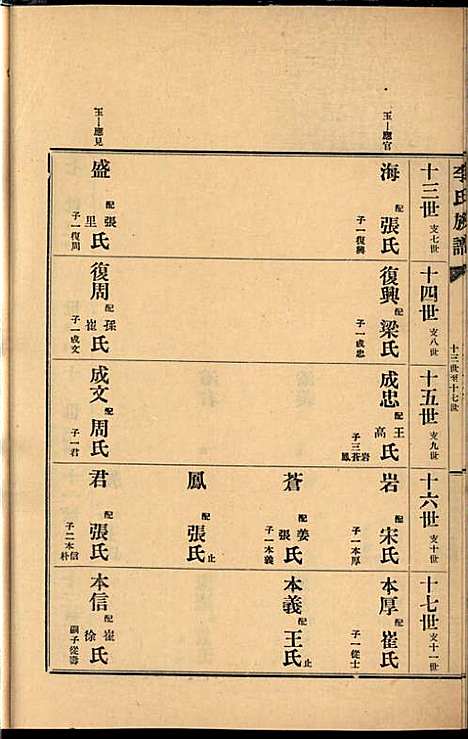 李氏族譜
十三世至十七世
十三世 支七世
十四世 支八世
十五世 支九世
十六世 支十世
十七世 支十一世
玉—應官
海 配張氏 子一復興
復興 配梁氏 子一成忠
成忠 配王高氏 子三岩蒼鳳
岩 配宋氏 子一本厚
本厚 配崔氏 子一從士
蒼 配姜張氏 子一本義
本義 配王氏 止
鳳 配張氏 止
玉—應見
盛 配張里氏 子一復周
復周 配孫崔氏 子一成文
成文 配周氏 子一君
君 配張氏 子二本信朴
本信 配崔徐氏 嗣子從壽